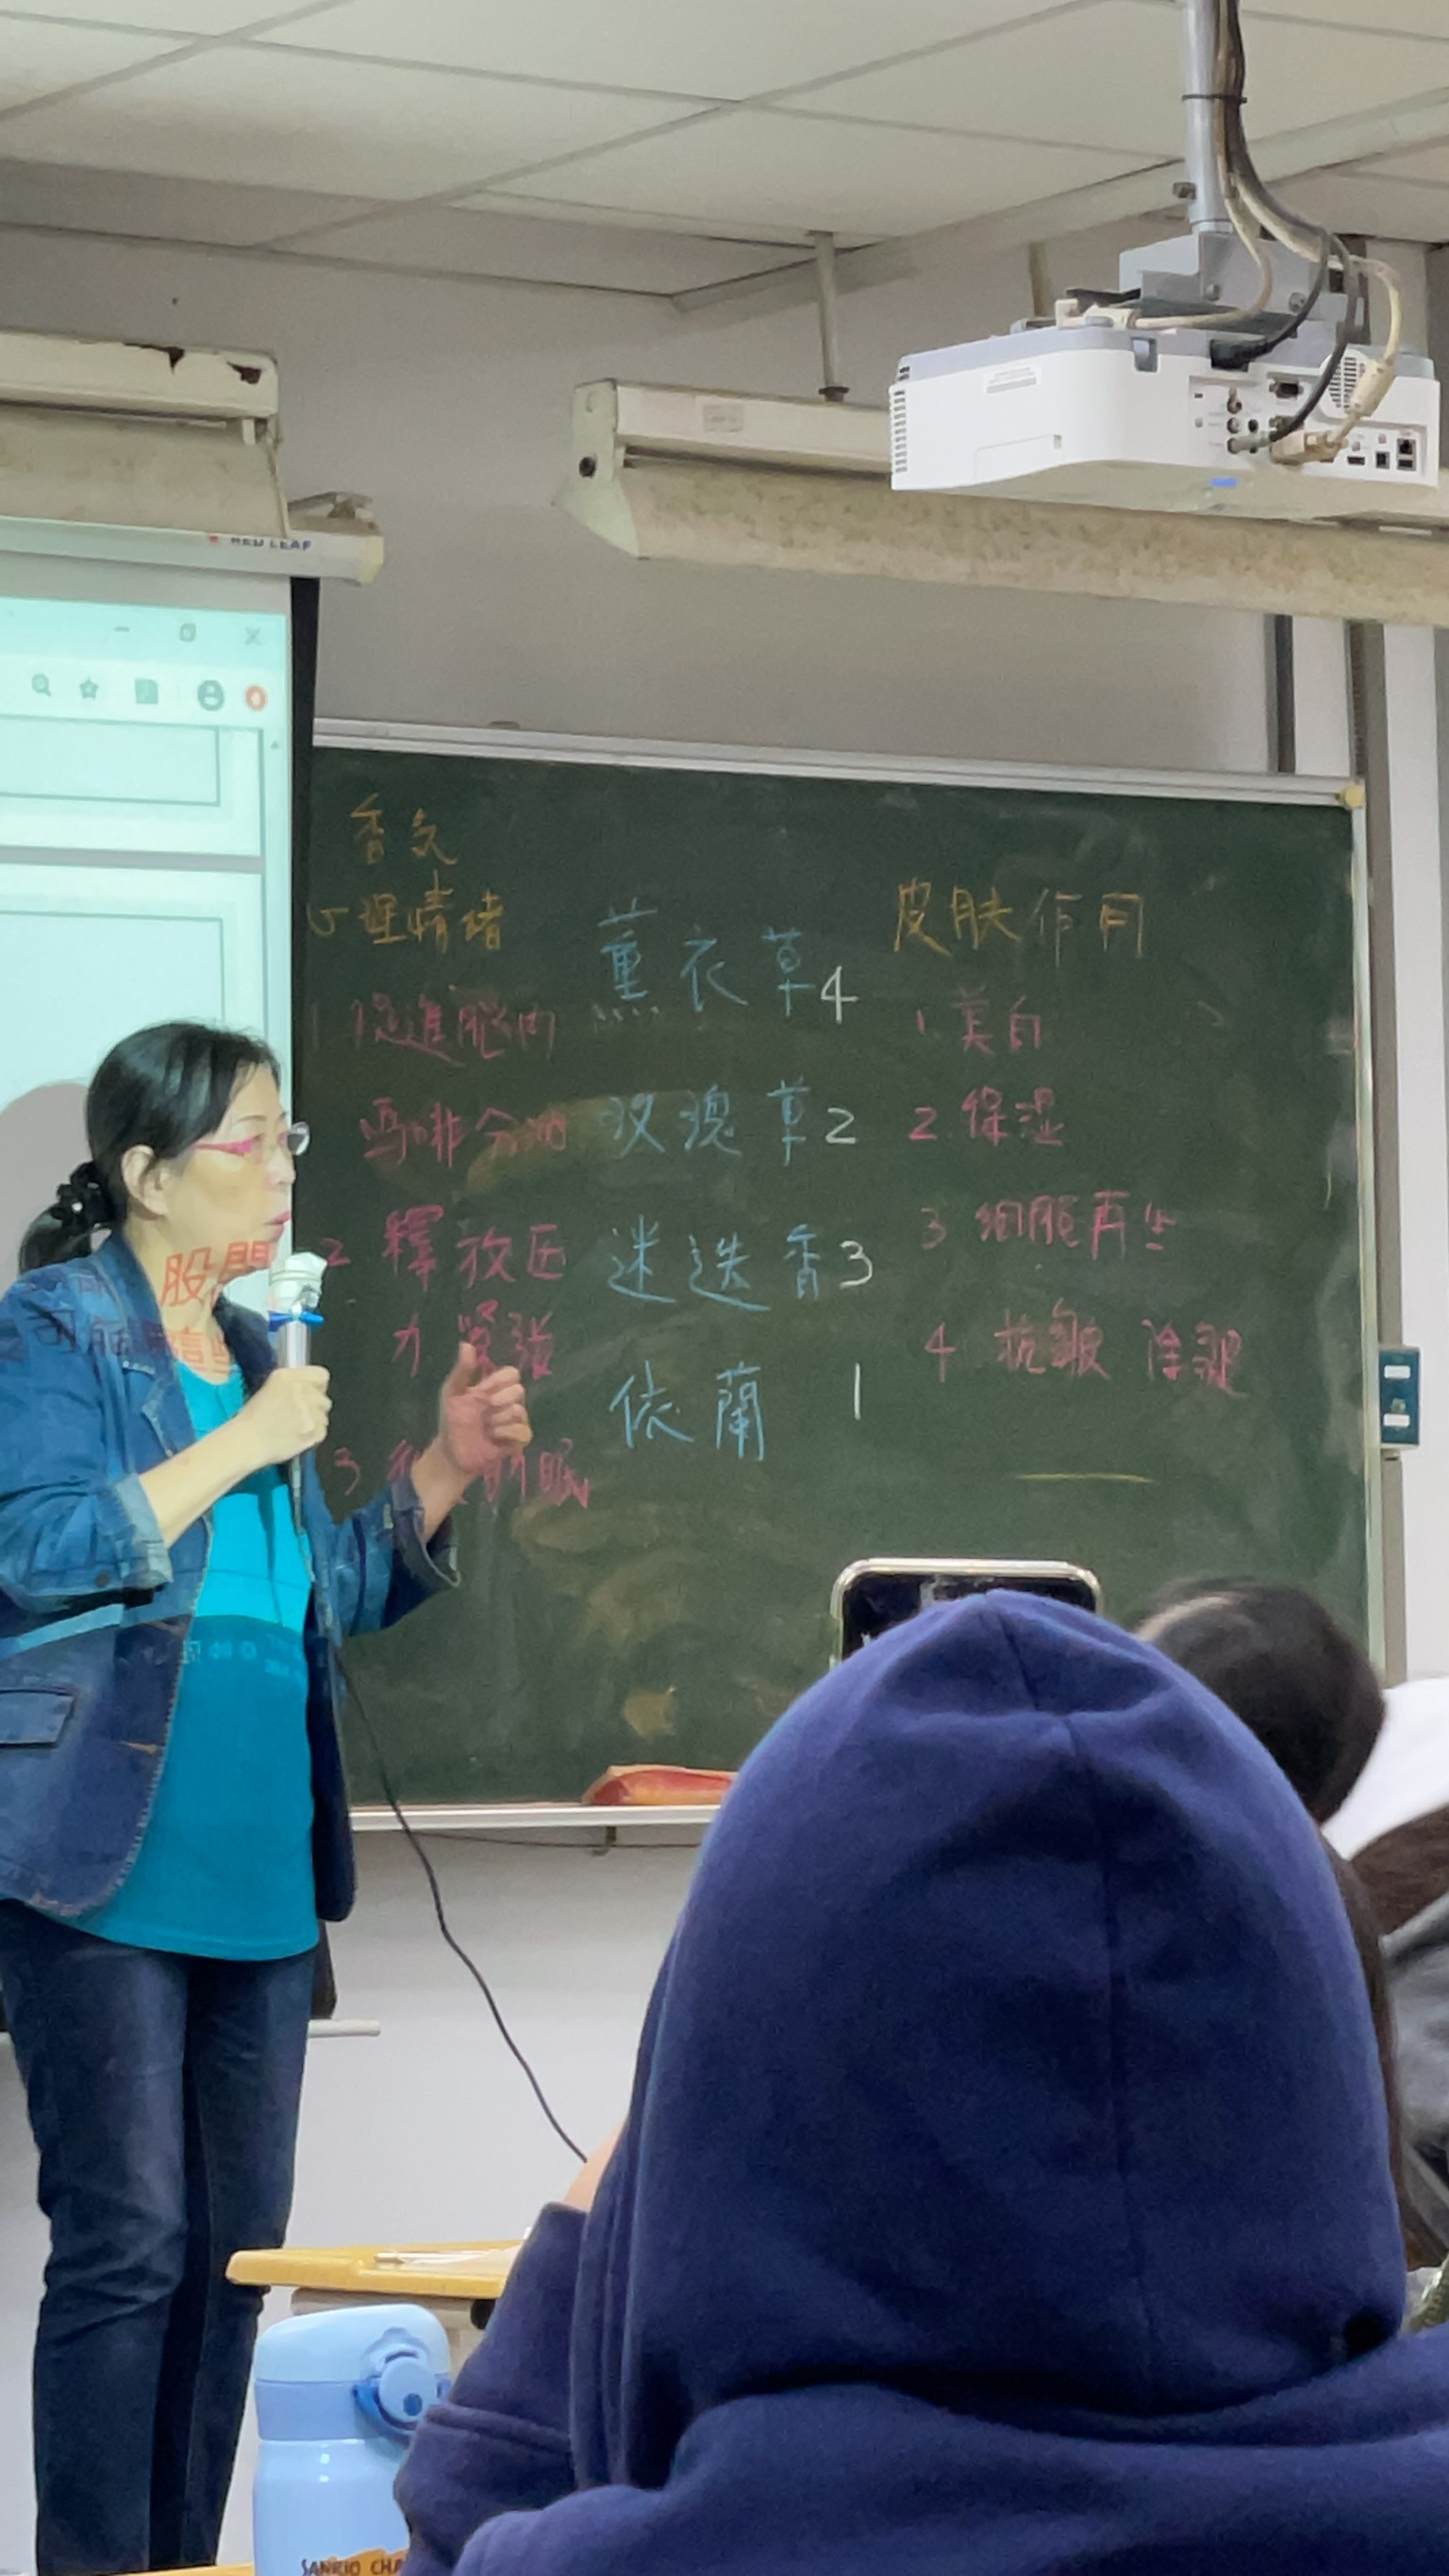 RED LEAF
香気
心理情緒
1 促進腦內
嗎啡分泌
2 釋放压
力 緊張
3
眠
薰衣草 4
玫瑰草 2
迷迭香 3
依蘭 1
皮肤作用
1. 美白
2. 保湿
3 細胞再生
4 抗皺 除疤
股間
SANRIO CHA